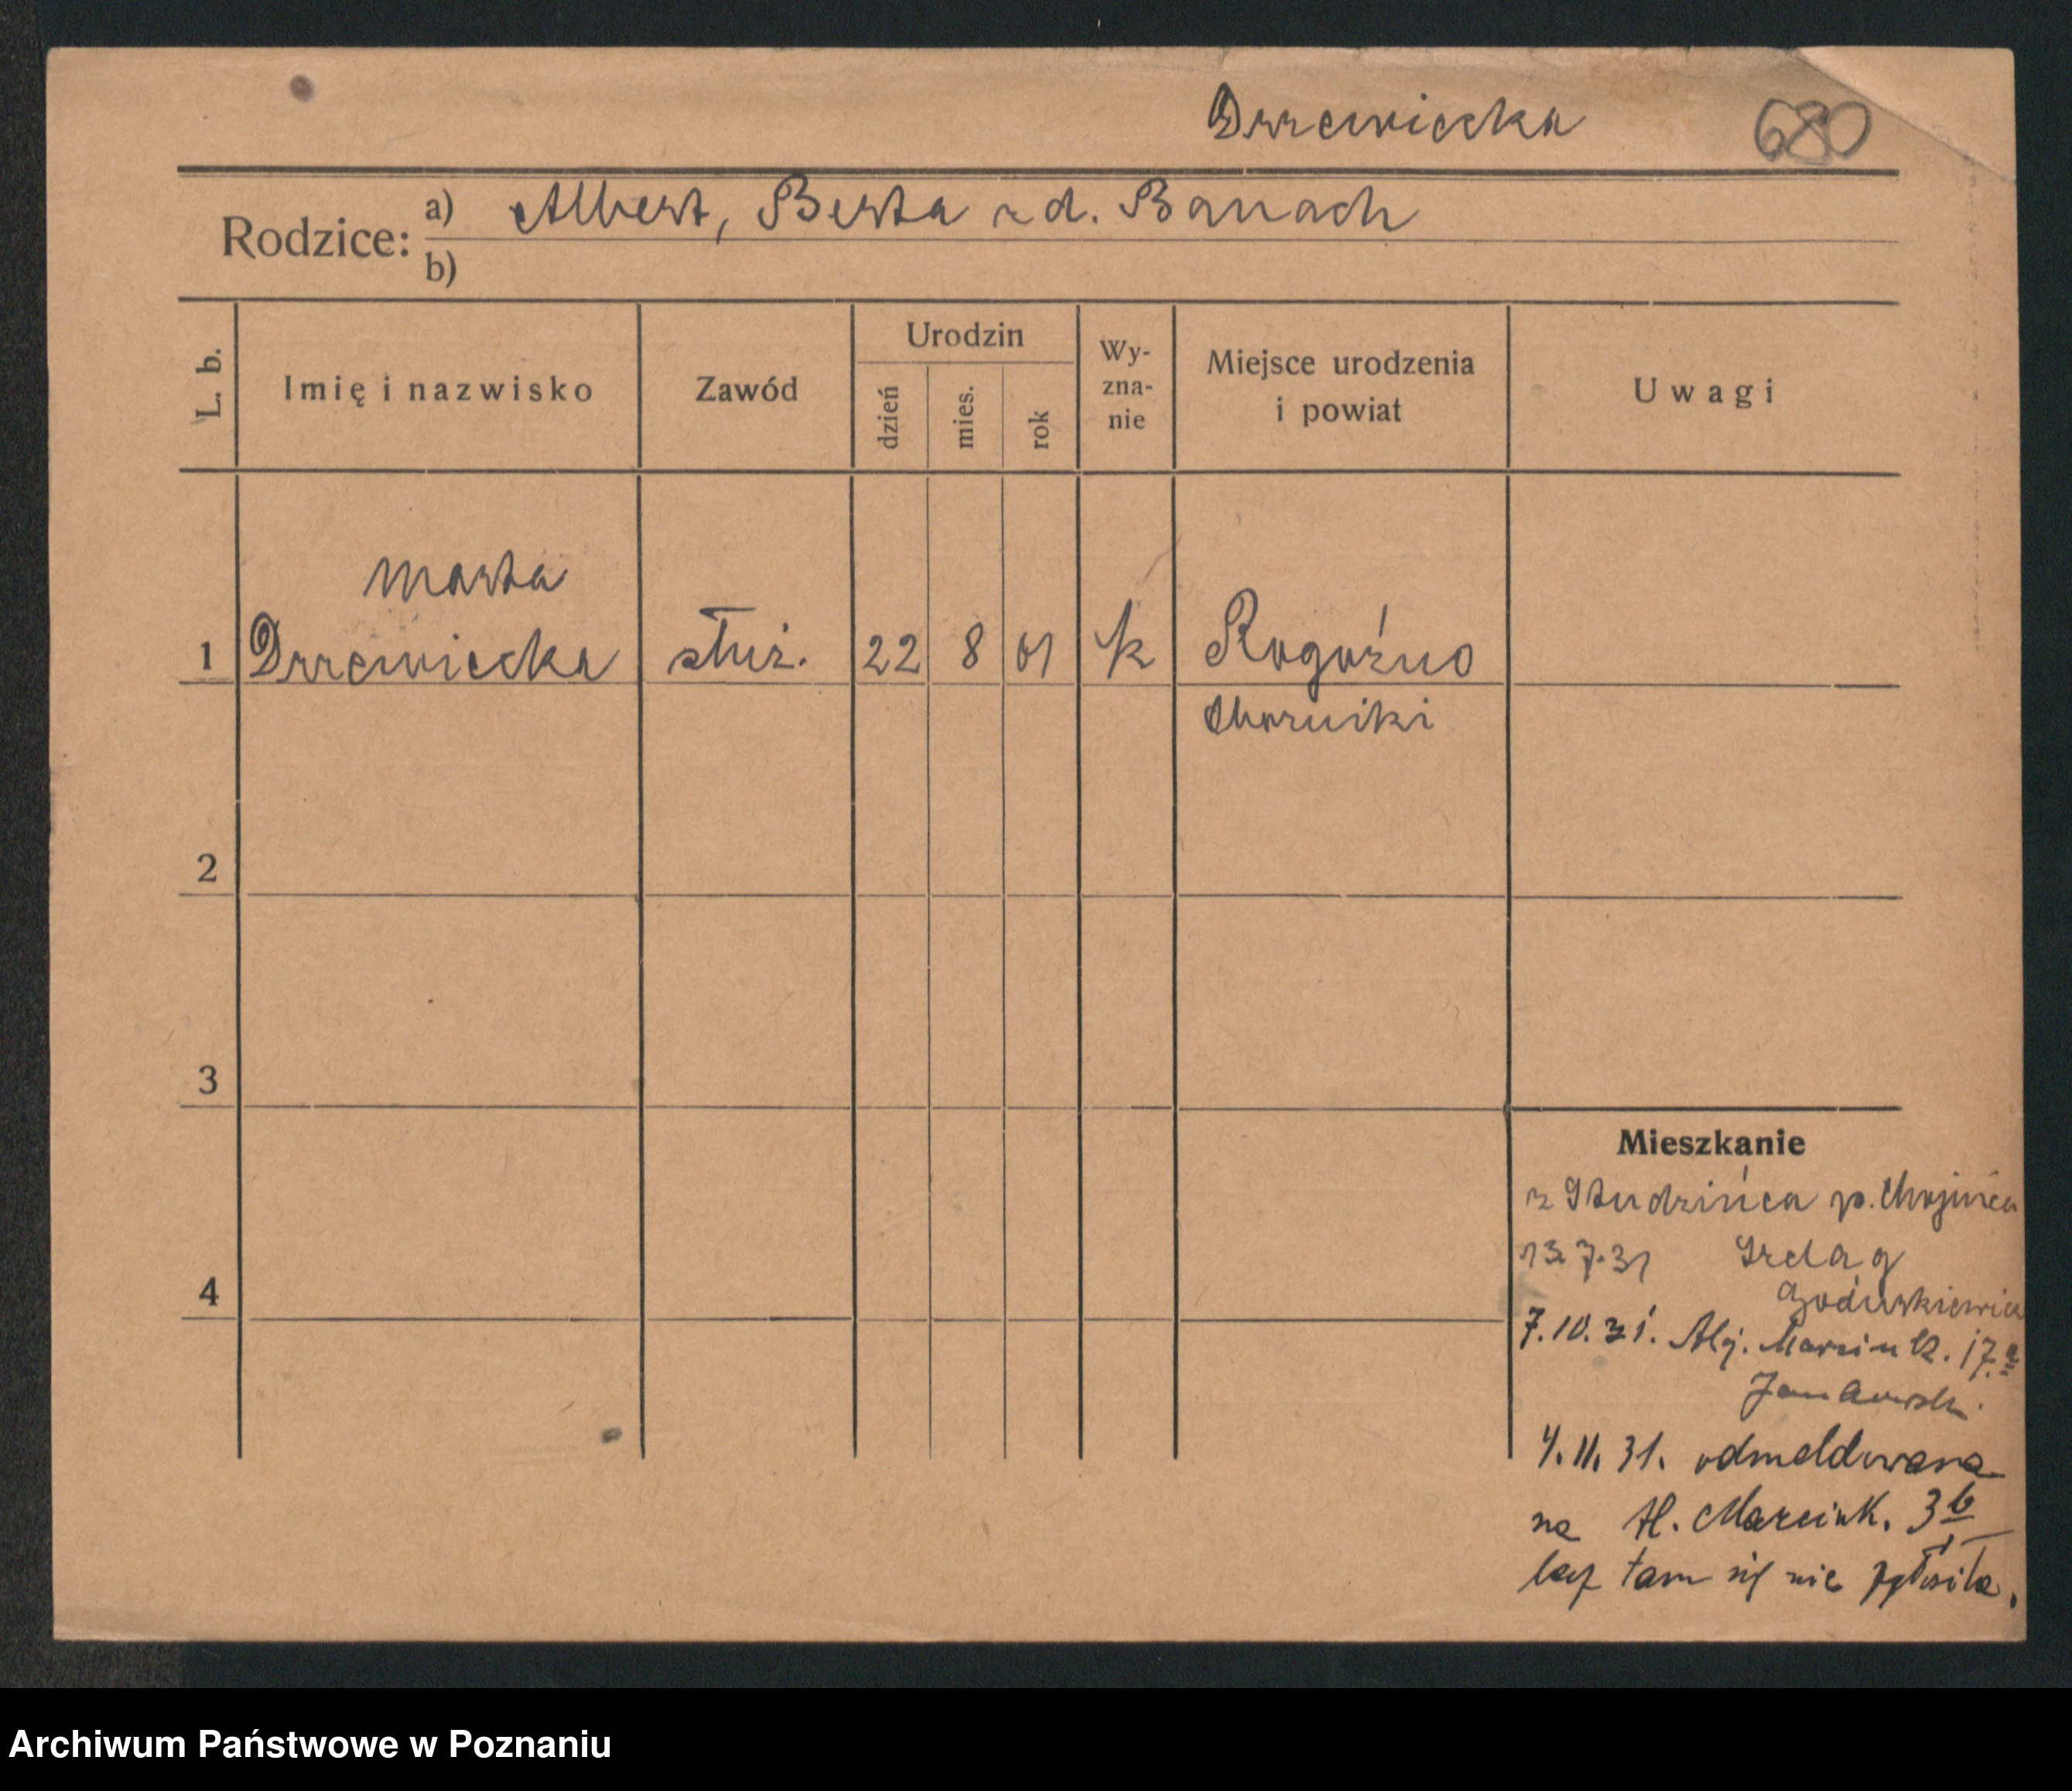 Drzewiecka 680
Rodzice: a) Albert, Berta z d. Banach
b)
L. b. Imię i nazwisko Zawód Urodzin dzień mies. rok Wy-zna-nie Miejsce urodzenia i powiat Uwagi
Marta
1 Drzewiecka służ. 22 8 01 k Rogoźno
Oborniki
2
3
4
Mieszkanie
z Studzińca p. Chojnica
13.7.31
7.10.31. Alj. Marcink. 17.a
Jankowski.
4.11.31. odmeldowana
na Al. Marcink. 3b
lecz tam się nie zgłosiła.
Archiwum Państwowe w Poznaniu